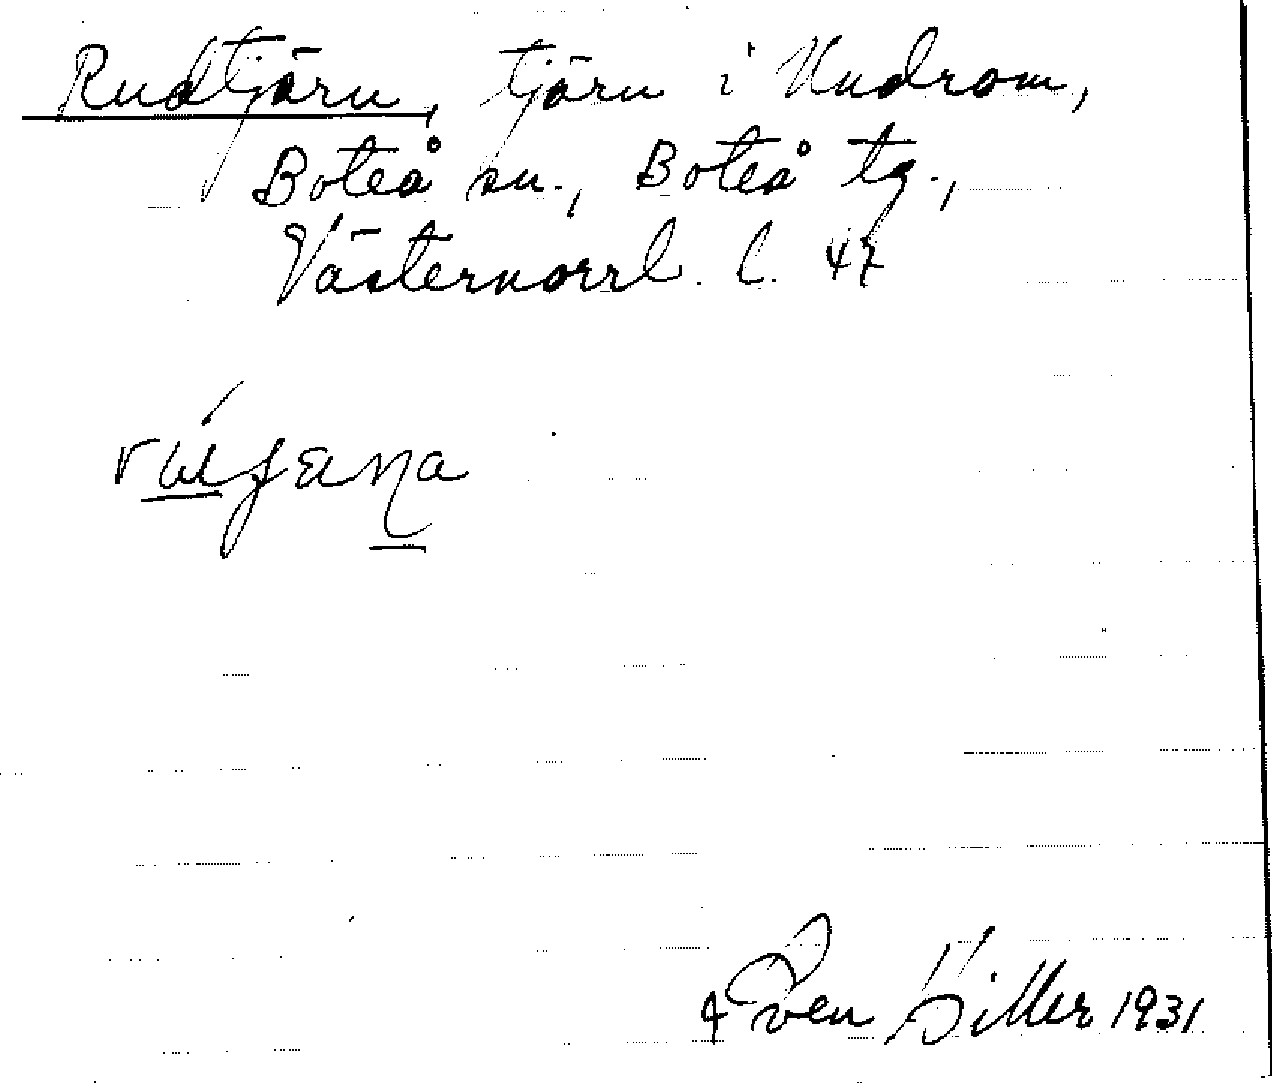 Rudtjärn, tjärn i Undrom,
Boteå sn., Boteå tg.,
Västernorrl. l. 47
Sven Siller 1931